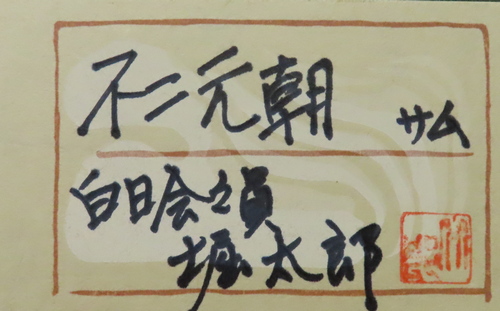 不二元朝 サム
白日会々員
堀太郎